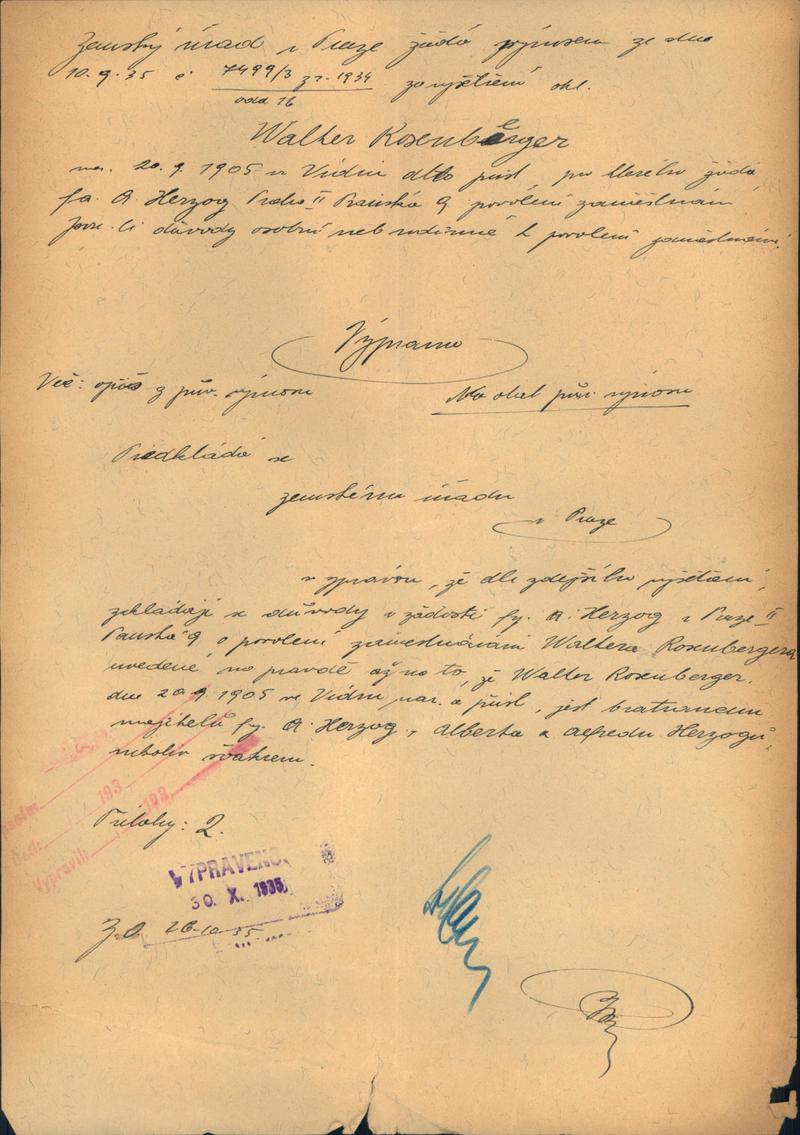 Zemský úřad v Praze žádá výnosem ze dne
10.9.35 č. 7499/3 z r. 1934
odd 16
za vyšetření okl.
Walter Rosenberger
nar. 20.9.1905 ve Vídni dtto přísl, pro kterého žádá
fa. A Herzog Praha II 9 povolení zaměstnání
jsou-li důvody osobní neb rodinné k povolení zaměstnání.
Výpravna
Věc: opis z pův. výnosu
Na okl pův. výnosu
Předkládá se
zemskému úřadu
v Praze
s zprávou, že dle zdejšího vyšetření,
zakládají se důvody v žádosti fy. A. Herzog v Praze II
9 o povolení zaměstnávání Waltera Rosenbergera
uvedené, na pravdě až na to, že Walter Rosenberger.
dne 20.9.1905 ve Vídni nar. a přísl, jest bratrancem
majitelů fy. A. Herzog, Alberta a Alfreda Herzogů,
nikoliv švakrem.
193
193
Vypravil:
Přílohy: 2.
VYPRAVENO
30. X. 1935
26-10-35